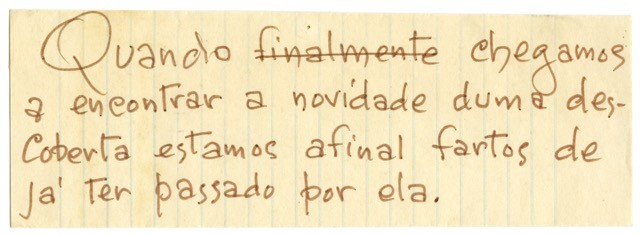 Quando finalmente chegamos
a encontrar a novidade duma des-
coberta estamos afinal fartos de
já ter passado por ela.